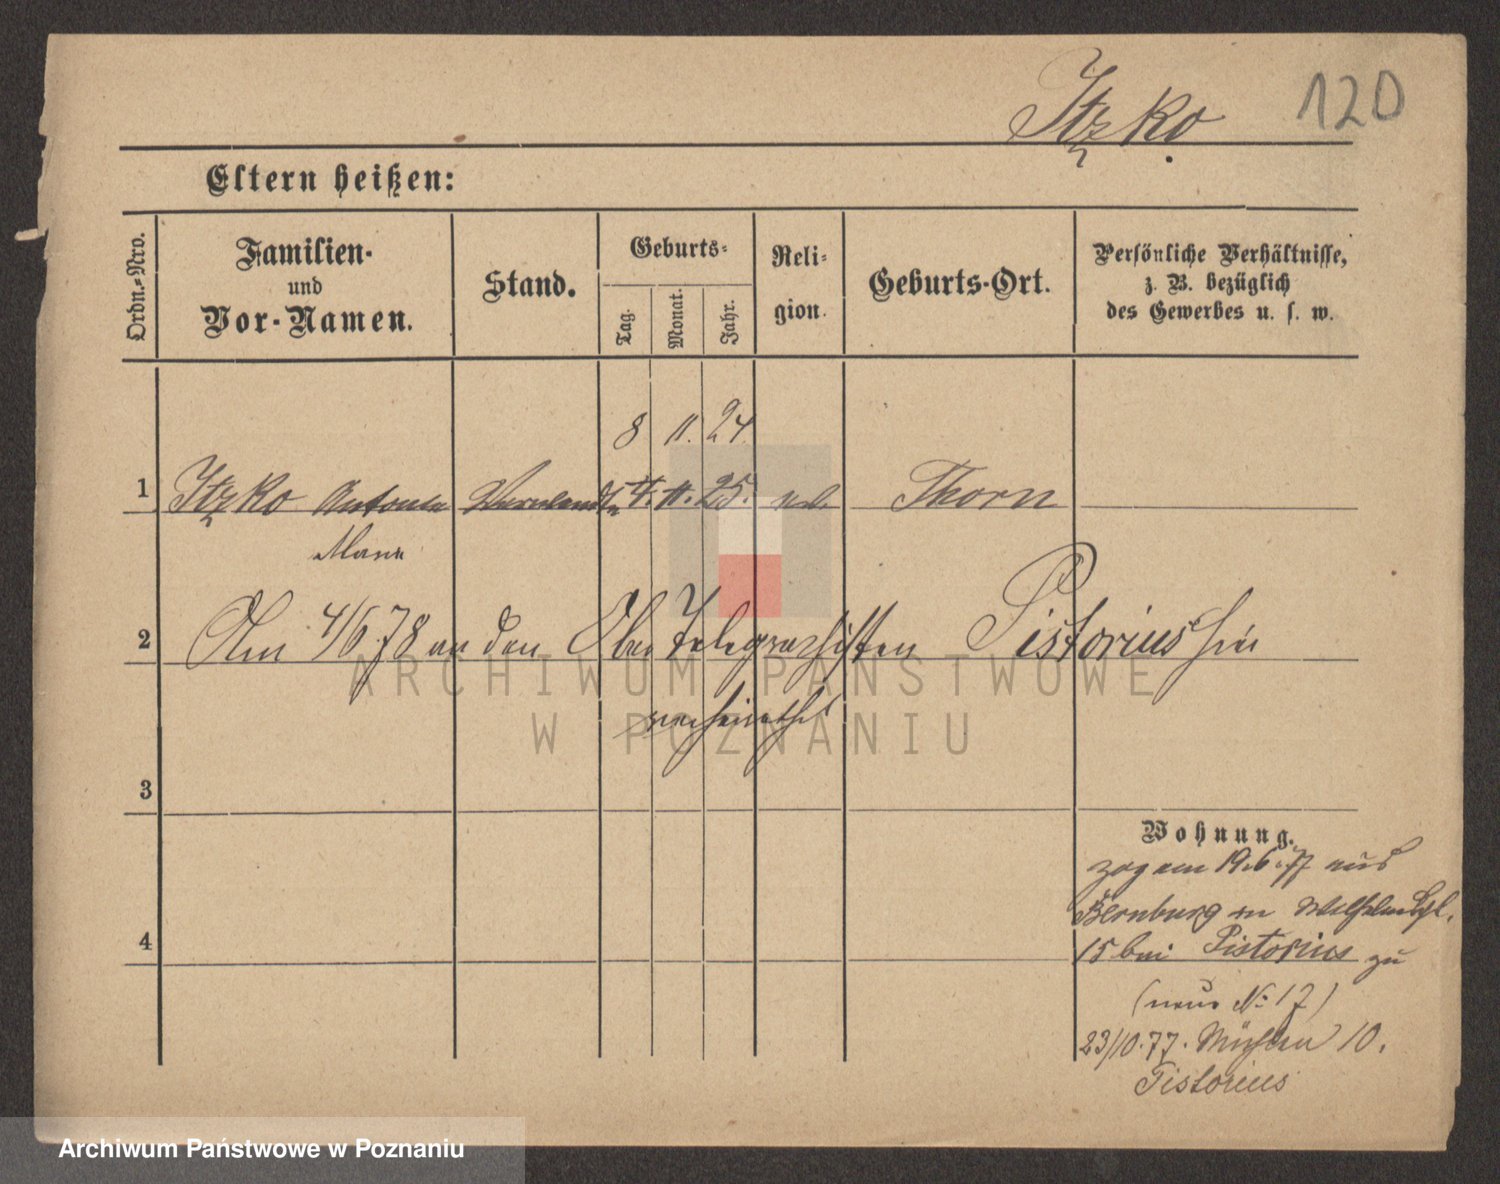 Itzko 120
Eltern heißen:
Ordn.-Nro.
Familien-
und
Vor-Namen.
Stand.
Geburts-
Tag.
Monat.
Jahr.
Reli-
gion.
Geburts-Ort.
Persönliche Verhältnisse,
z. B. bezüglich
des Gewerbes u. s. w.
8 11. 24
1 Itzko Antonie 11. 25. Thorn
2 Am 4/6 78 an den Ober Telegraphisten Pistorius hier
verheirathet
3
Wohnung.
zog am 19.6.77 aus
Bernburg
4
15 bei Pistorius zu
(neue No 17)
23/10.77. Mühlen 10.
Pistorius
ARCHIWUM PAŃSTWOWE
W POZNANIU
Archiwum Państwowe w Poznaniu